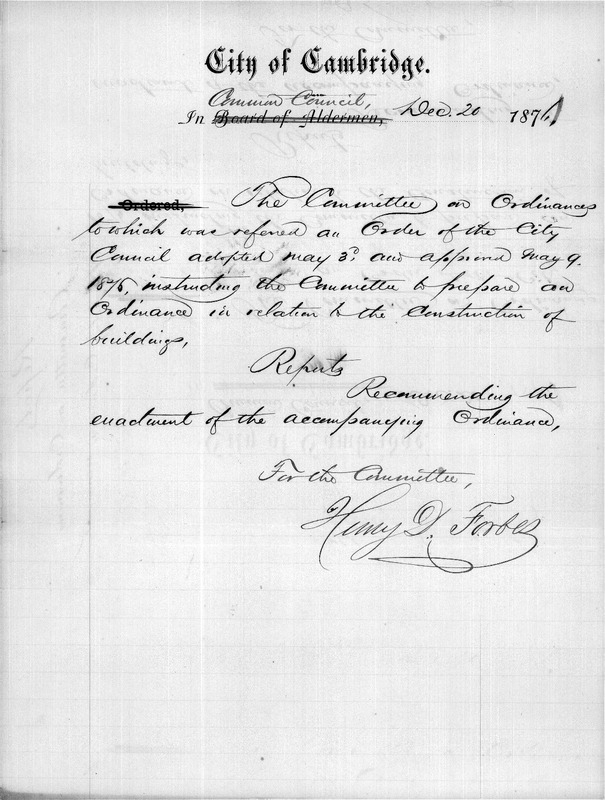 City of Cambridge.
Common Council,
In Board of Aldermen, Dec. 20 1876
Ordered, The Committee on Ordinances
to which was referred an Order of the City
Council adopted May 3d and approved May 9.
1876, instructing the Committee to prepare an
Ordinance in relation to the Construction of
buildings,
Reports
Recommending the
enactment of the accompanying Ordinance,
For the Committee,
Henry D. Forbes